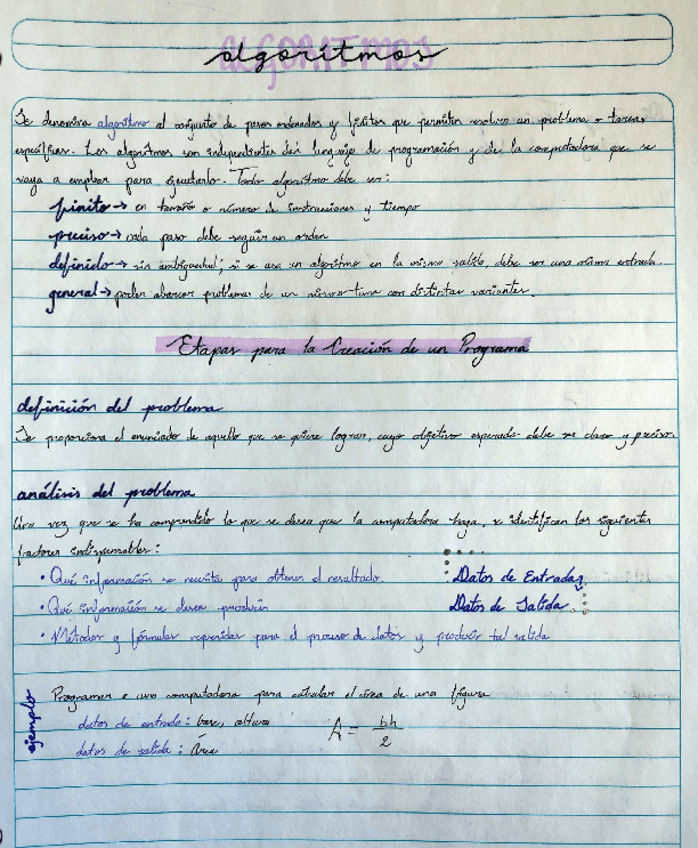 ALGORITMOS
algoritmos
Se denomina algoritmo al conjunto de pasos ordenados y finitos que permiten resolver un problema o tareas
específicas. Los algoritmos son independientes del lenguaje de programación y de la computadora que se
vaya a emplear para ejecutarlo. Todo algoritmo debe ser:
finito → en tamaño o número de instrucciones y tiempo
preciso → cada paso debe seguir un orden
definido → sin ambigüedad; si se usa un algoritmo en la misma salida, debe ser una misma entrada.
general → poder abarcar problemas de un mismo tema con distintas variantes.
Etapas para la Creación de un Programa
definición del problema
Se proporciona el enunciado de aquello que se quiere lograr, cuyo objetivo esperado debe ser claro y preciso.
análisis del problema
Una vez que se ha comprendido lo que se desea que la computadora haga, se identifican los siguientes
factores indispensables:
• Qué información se necesita para obtener el resultado. Datos de Entrada
• Qué información se desea producir Datos de Salida
• Métodos y fórmulas requeridas para el proceso de datos y producir tal salida
ejemplo
Programar a una computadora para calcular el área de una figura
datos de entrada: base, altura A = bh/2
datos de salida: Área